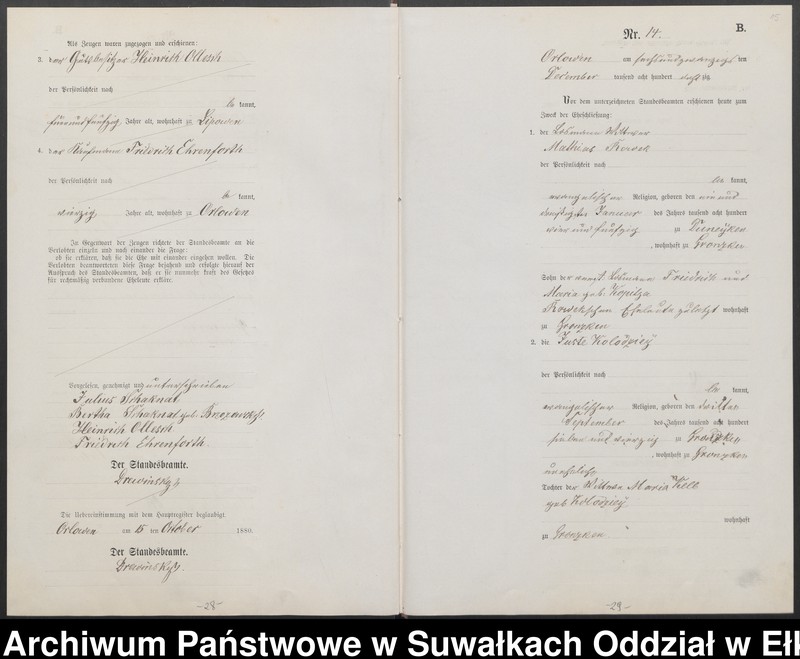 Als Zeugen waren zugezogen und erschienen:
3. der Gutsbesitzer Heinrich Ollesch
der Persönlichkeit nach
be kannt,
fünfundfünfzig Jahre alt, wohnhaft zu Lipowen
4. der Kaufmann Friedrich Ehrenforth
der Persönlichkeit nach
be kannt,
vierzig Jahre alt, wohnhaft zu Orlowen
In Gegenwart der Zeugen richtete der Standesbeamte an die
Verlobten einzeln und nach einander die Frage:
ob sie erklären, daß sie die Ehe mit einander eingehen wollen. Die
Verlobten beantworteten diese Frage bejahend und erfolgte hierauf der
Ausspruch des Standesbeamten, daß er sie nunmehr kraft des Gesetzes
für rechtmäßig verbundene Eheleute erkläre.
Vorgelesen, genehmigt und unterschrieben
Julius Schaknat
Bertha Schaknat geb.
Heinrich Ollesch
Friedrich Ehrenforth
Der Standesbeamte.
Die Uebereinstimmung mit dem Hauptregister beglaubigt.
Orlowen am 15 ten Oktober 1880.
Der Standesbeamte.
-28-
B.
Nr. 14.
Orlowen am sechsundzwanzigsten
Dezember tausend acht hundert achtzig.
Vor dem unterzeichneten Standesbeamten erschienen heute zum
Zweck der Eheschließung:
1. der Losmann Wittwer
Mathias
der Persönlichkeit nach
be kannt,
evangelischer Religion, geboren den ein und
dreißigsten Januar des Jahres tausend acht hundert
vier und fünfzig zu
, wohnhaft zu Gronzken
Sohn der Losmann Friedrich und
Maria geb. Kopitza
Eheleute zuletzt wohnhaft
zu Gronzken
2. die Juste
der Persönlichkeit nach
be kannt,
evangelischer Religion, geboren den dritten
September des Jahres tausend acht hundert
sieben und vierzig zu Gronzken
, wohnhaft zu Gronzken
uneheliche
Tochter der Wittwe Maria
geb.
wohnhaft
zu Gronzken.
-29-
Archiwum Państwowe w Suwałkach Oddział w Ełk